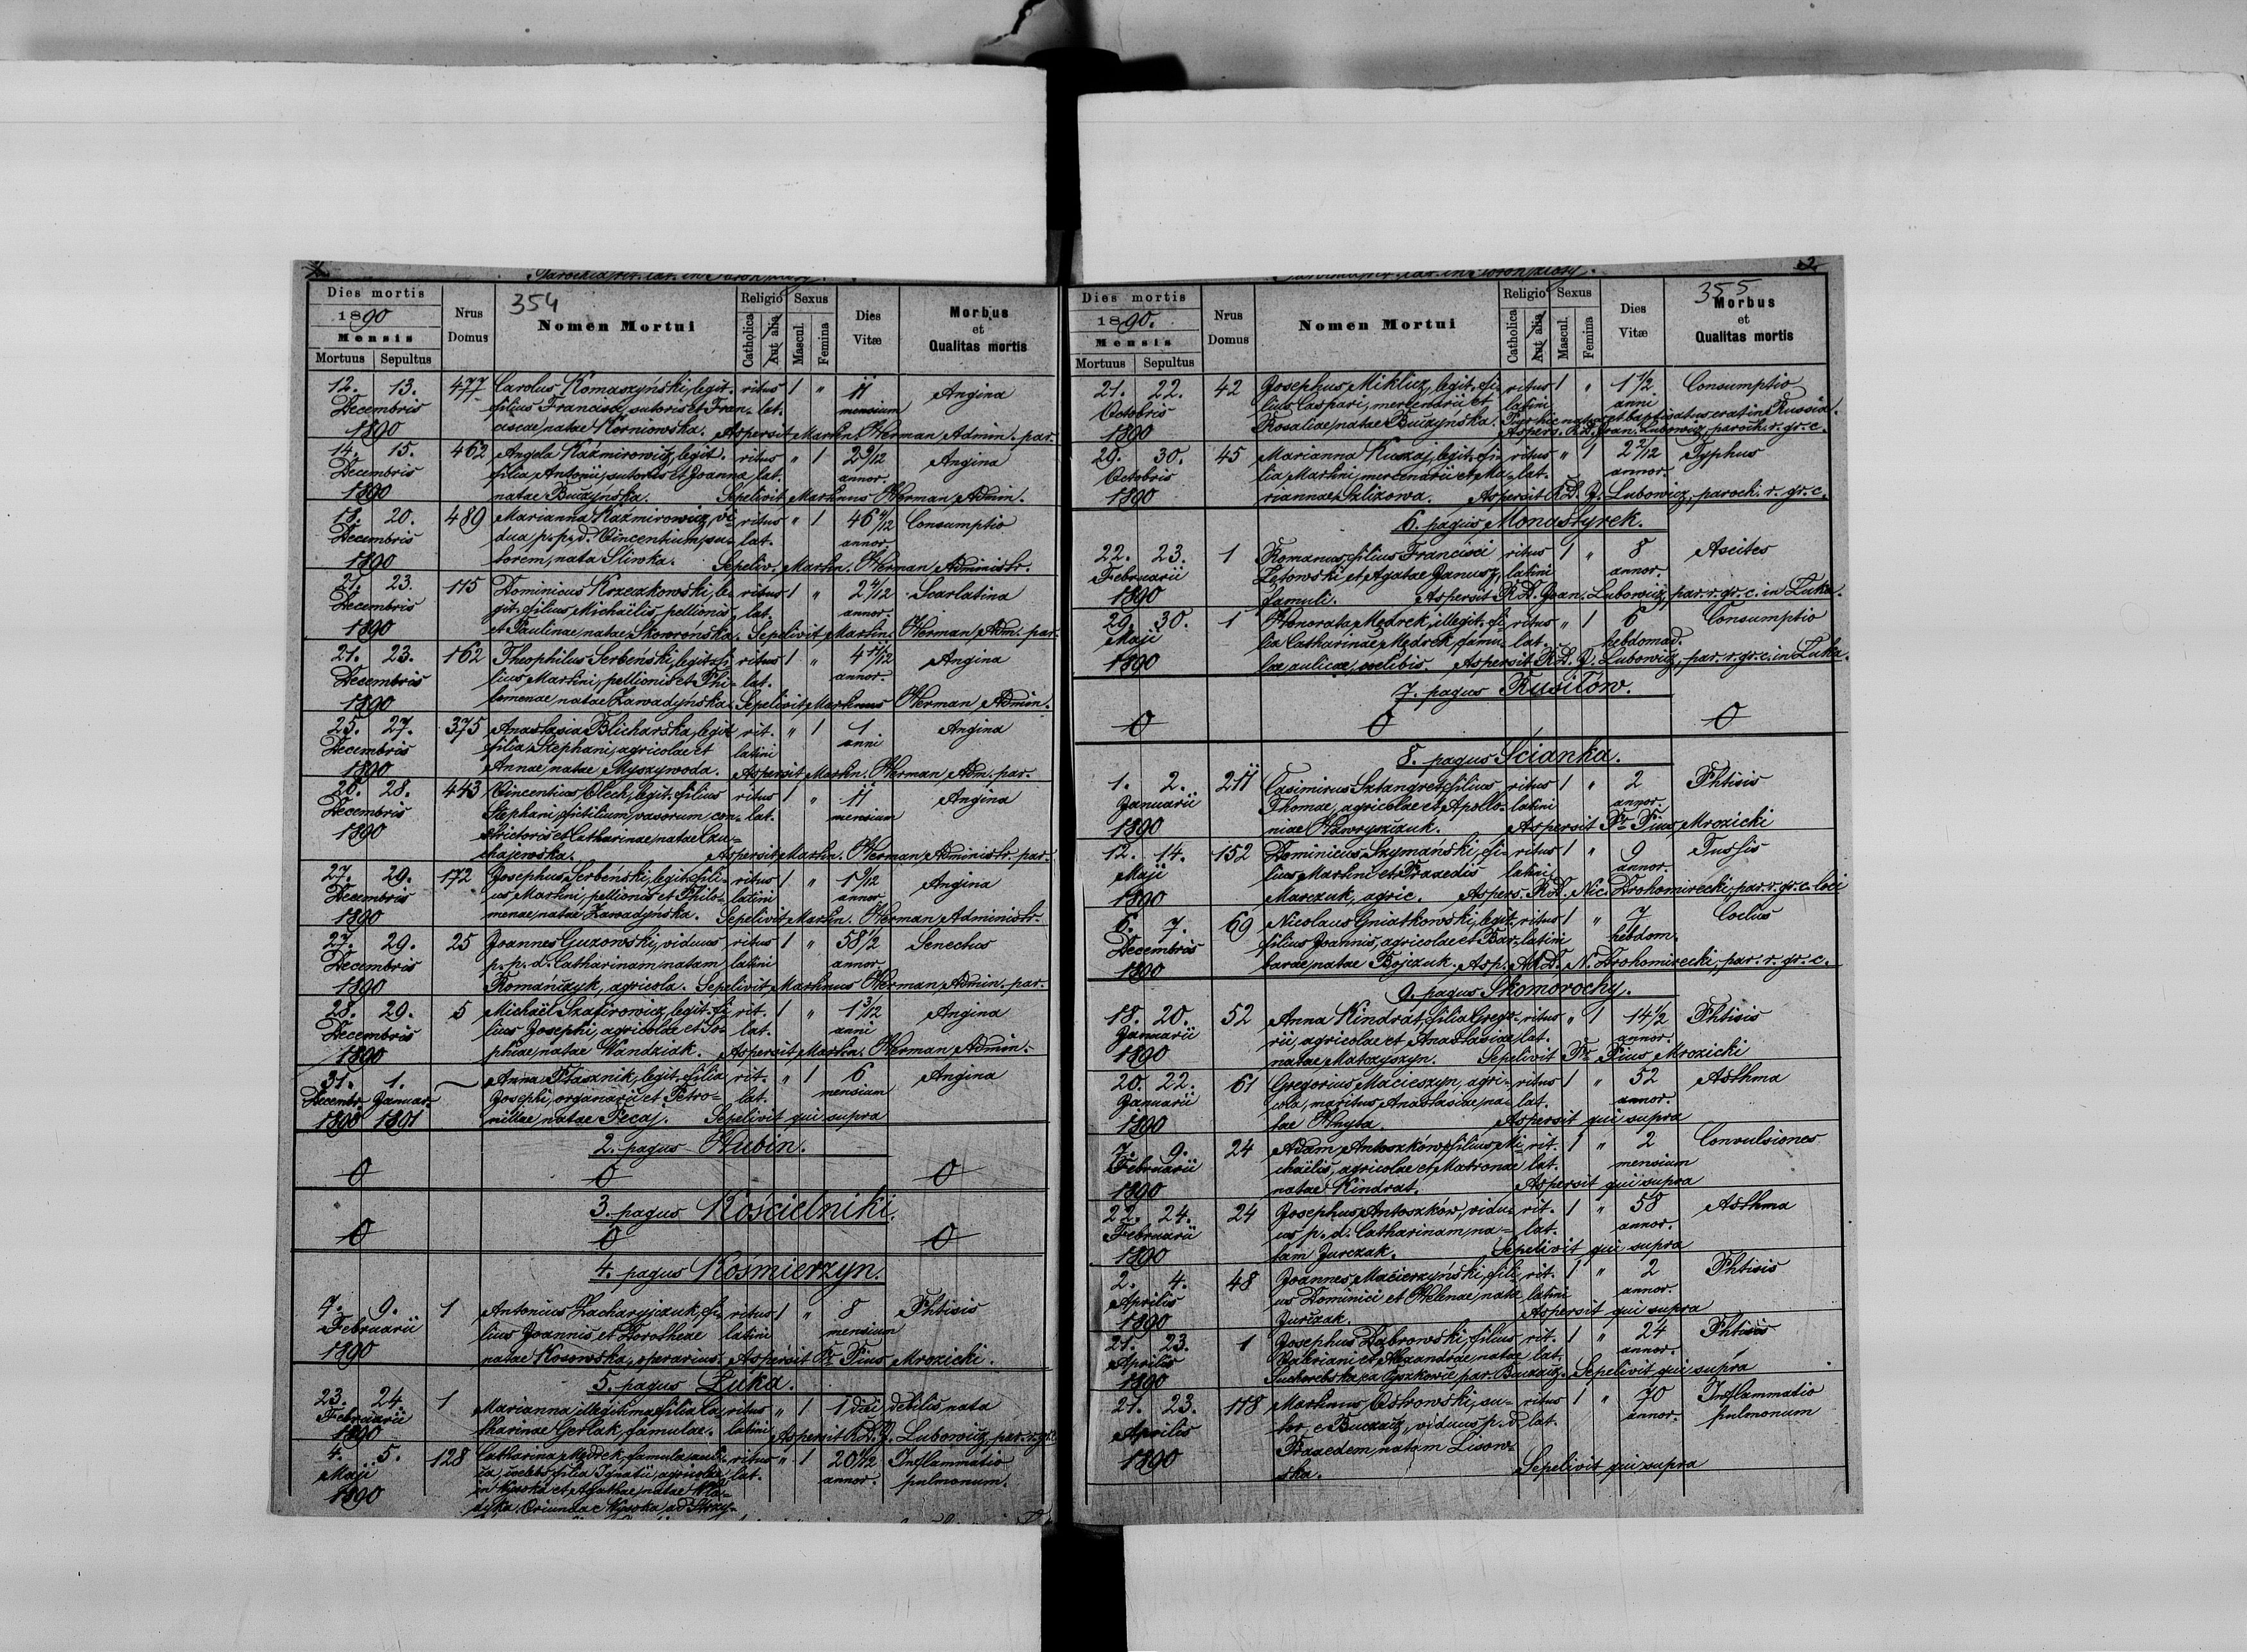 354
Dies mortis
1890
Mensis
Mortuus Sepultus
Nrus Domus
Nomen Mortui
Religio
Catholica
Aut alia
Sexus
Mascul.
Femina
Dies Vitæ
Morbus et Qualitas mortis
12. 13. 477 Carolus Romaszyński, legit. ritus 1 " 11 Angina
Decembris filius Francisci, sutoris et Fran- lat. mensium
1890 ciscae, natae Korniowska. Aspersit Martin. Herman Admin. par.
14. 15. 462 Angela Kaźmirowicz, legit. ritus " 1 2 9/12 Angina
Decembris filia Antonii, sutoris et Joanna, lat. annor.
1890 natae Buczyńska. Sepelivit Martinus Herman Admin.
18. 20. 489 Marianna Kaźmirowicz, vi- ritus " 1 46 4/12 Consumptio
Decembris dua p. p. d. Vincentium, su- lat. annor.
1890 torem, nata Sliwka. Sepeliv. Martin. Herman Administr.
21. 23. 115 Dominicus Krzeczkowski, le- ritus 1 " 2 4/12 Scarlatina
Decembris git. filius Michaëlis, pellionis, lat. annor.
1890 et Paulinae, natae Skowrońska. Sepelivit Martin. Herman Adm. par.
21. 23. 162 Theophilus Serbeński, legit. fi- ritus 1 " 4 11/12 Angina
Decembris lius Martini, pellionis et Phi- lat. annor.
1890 lomenae, natae Zawadyńska. Sepelivit Martinus Herman Admin.
25. 27. 375 Anastasia Blicharska, legit. rit. " 1 1 Angina
Decembris filia Stephani, agricolae et latini anni
1890 Annae, natae Myszywoda. Aspersit Martin. Herman Adm. par.
26. 28. 443 Vincentius Olech, legit. filius ritus 1 " 11 Angina
Decembris Stephani, fictilium vasorum con- lat. mensium
1890 strictoris et Catharinae, natae Cau-
chajewska. Aspersit Martin. Herman Administr. par.
27. 29. 172 Josephus Serbeński, legit. fili- ritus 1 " 1 9/12 Angina
Decembris us Martini, pellionis et Philo- latini annor.
1890 menae, natae Zawadyńska. Sepelivit Martin. Herman Administr.
27. 29. 25 Joannes Guzowski, viduus ritus 1 " 58 1/2 Senectus
Decembris p. p. d. Catharinam natam latini annor.
1890 Romańczyk, agricola. Sepelivit Martinus Herman Admin. par.
28. 29. 5 Michaël Szafirowicz, legit. fi- rit. 1 " 1 3/12 Angina
Decembris lius Josephi, agricolae et So- lat. anni
1890 phiae, natae Wandziak. Aspersit Martin. Herman Admin.
31. 1. Anna Ptasznik, legit. filia rit. " 1 6 Angina
Decembr. Januar. Josephi, organarii et Petro- lat. mensium
1890 1891 nillae, natae Pecaj. Sepelivit qui supra
2. pagus Hubin.
0 0 0
3. pagus Kościelniki.
0 0 0
4. pagus Kośmierzyn.
7. 9. 1 Antonius Zacharyjczuk, fi- ritus 1 " 8 Phtisis
Februarii lius Joannis et Dorotheae latini mensium
1890 natae Kosowska, operarius. Aspersit Fr. Pius Mrozicki.
5. pagus Łuka.
23. 24. 1 Marianna, illegitima filia Ca- ritus " 1 1 diei debilis nata
Februarii tharinae Gerlak, famulae. latini
1890 Aspersit R.D. J. Lubowicz, par. r. gr. c.
4. 5. 128 Catharina Mędrek, famula auli- ritus " 1 20 1/2 Inflammatio
Maji ca, caelebs, filia Ignatii, agricolae lat. annor. pulmonum.
1890 in Wysoka et Agathae, natae Wła-
dyka. Oriunda e Wysoka ad Strzy-
355
2.
Dies mortis
1890.
Mensis
Mortuus Sepultus
Nrus Domus
Nomen Mortui
Religio
Catholica
Aut alia
Sexus
Mascul.
Femina
Dies Vitæ
Morbus et Qualitas mortis
21. 22. 42 Josephus Miklicz, legit. fi- ritus 1 " 1 1/2 Consumptio
Octobris lius Caspari, mercenarii et latini anni
1890 Rosaliae, natae Buczyńska. natus et baptisatus erat in Russia.
Aspers. R.D. Joan. Lubowicz, paroch. r. gr. c.
29. 30. 45 Marianna Kuszaj, legit. fi- ritus " 1 2 2/12 Typhus
Octobris lia Martini, mercenarii et Ma- lat. annor.
1890 riannae Szlizowa. Aspersit R.D. J. Lubowicz, paroch. r. gr. c.
6. pagus Monastyrek.
22. 23. 1 Romanus, filius Francisci ritus 1 " 8 Ascites
Februarii Lętowski et Agatae Janusz, latini annor.
1890 famuli. Aspersit R.D. Joan. Lubowicz, par. r. gr. c. in Łuka.
29. 30. 1 Honorata Mędrek, illegit. fi- ritus " 1 6 Consumptio
Maji lia Catharinae Mędrek, famu- lat. hebdomad.
1890 lae aulicae, caelibis. Aspersit R.D. J. Lubowicz, par. r. gr. c. in Łuka.
7. pagus Rusiłow.
0 0 0
8. pagus Scianka.
1. 2. 211 Casimirus Sztangret, filius ritus 1 " 2 Phtisis
Januarii Thomae, agricolae et Apollo- latini annor.
1890 niae Hawryszczuk. Aspersit Fr. Pius Mrozicki
12. 14. 152 Dominicus Szymański, fi- ritus 1 " 9 Tussis
Maji lius Martini et Praxedis latini annor.
1890 Marczuk, agric. Aspers. R.D. Nic. Drohomirecki, par. r. gr. c. loci
6. 7. 69 Nicolaus Gniatkowski, legit. ritus 1 " 7 Coelus
Decembris filius Joannis, agricolae et Bar- latini hebdom.
1890 barae, natae Bojczuk. Asp. A.R.D. N. Drohomirecki, par. r. gr. c.
9. pagus Skomorochy.
18. 20. 52 Anna Kindrat, filia Grego- ritus " 1 14 1/2 Phtisis
Januarii rii, agricolae et Anastasiae lat. annor.
1890 natae Matczyszyn. Sepelivit Fr. Pius Mrozicki
20. 22. 61 Gregorius Macieszyn, agri- ritus 1 " 52 Asthma
Januarii cola, maritus Anastasiae, na- lat. annor.
1890 tae Hnyba. Aspersit qui supra
7. 9. 24 Adam Antoszków, filius Mi- rit. 1 " 2 Convulsiones
Februarii chaëlis, agricolae et Matronae lat. mensium
1890 natae Kindrat. Aspersit qui supra
22. 24. 24 Josephus Antoszków, vidu- rit. 1 " 58 Asthma
Februarii us p. d. Catharinam, na- lat. annor.
1890 tam Jurczak. Sepelivit qui supra
2. 4. 48 Joannes Macierzyński, fili- rit. 1 " 2 Phtisis
Aprilis us Dominici et Helenae, nata latini annor.
1890 Jurczak. Aspersit qui supra
21. 23. 1 Josephus Dąbrowski, filius rit. 1 " 24 Phtisis
Aprilis Valeriani et Alexandrae, natae lat. annor.
1890 Suchorebska, ex Cyszkowie par. Buczacz. Sepelivit qui supra
21. 23. 118 Martinus Ostrowski, su- ritus 1 " 70 Inflammatio
Aprilis tor, e Buczacz, viduus p. d. lat. annor. pulmonum
1890 Praxedem, natam Lisow-
ska. Sepelivit qui supra